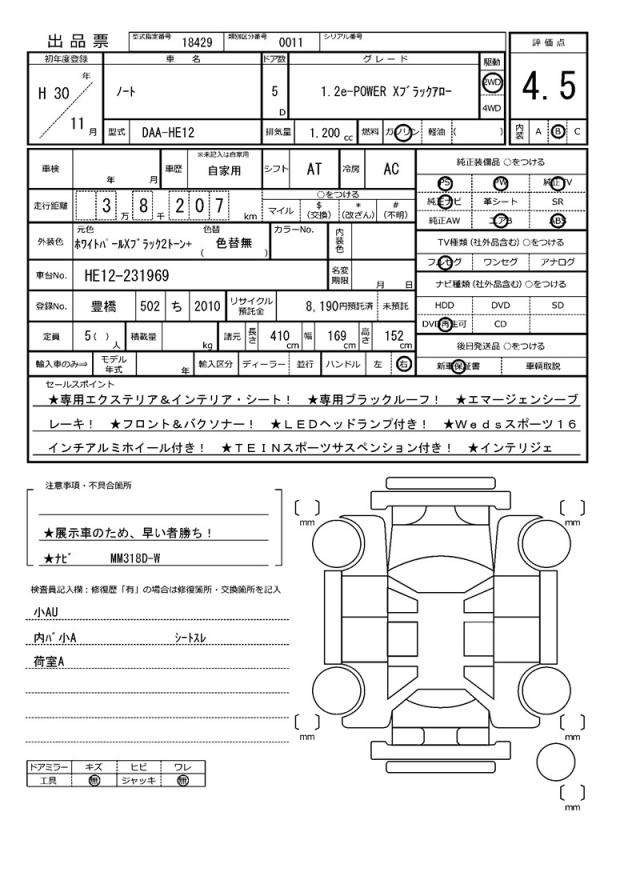 出品票 型式指定番号 18429 類別区分番号 0011 シリアル番号
評価点
初年度登録 車名 ドア数 グレード 駆動
H 30 年 11 月
ノート
5 D
1.2e-POWER Xブラックアロー
2WD
4WD
4.5
型式 DAA-HE12 排気量 1.200 cc 燃料 ガソリン 軽油 ( )
内装 A B C
車検 年 月 車歴 ※未記入は自家用 自家用 シフト AT 冷房 AC
純正装備品 ○をつける
PS PW 純正TV
走行距離 3 万 8 千 2 0 7 km
○をつける
マイル $(交換) *(改ざん) #(不明)
純正ナビ 革シート SR
純正AW エアB ABS
外装色 元色 ホワイトパールXブラック2トーン+ 色替 ( 色替無 ) カラーNo. 内装色
TV種類(社外品含む)○をつける
フルセグ ワンセグ アナログ
車台No. HE12-231969 名変期限 月 日
ナビ種類(社外品含む)○をつける
登録No. 豊橋 502 ち 2010 リサイクル預託金 8,190円預託済 未預託
HDD DVD SD
DVD再生可 CD
定員 5( )人 積載量 kg 諸元 長さ 410 cm 幅 169 cm 高さ 152 cm
後日発送品 ○をつける
輸入車のみ⇒ モデル年式 年 輸入区分 ディーラー 並行 ハンドル 左 右
新車保証書 車輌取説
セールスポイント
★専用エクステリア&インテリア・シート! ★専用ブラックルーフ! ★エマージェンシーブ
レーキ! ★フロント&バクソナー! ★LEDヘッドランプ付き! ★Wedsスポーツ16
インチアルミホイール付き! ★TEINスポーツサスペンション付き! ★インテリジェ
注意事項・不具合箇所
★展示車のため、早い者勝ち!
★ナビ MM318D-W
検査員記入欄:修復歴「有」の場合は修復箇所・交換箇所を記入
小AU
内バ小A シートスレ
荷室A
ドアミラー キズ ヒビ ワレ
工具 無 ジャッキ 無
mm
mm
mm
mm
mm